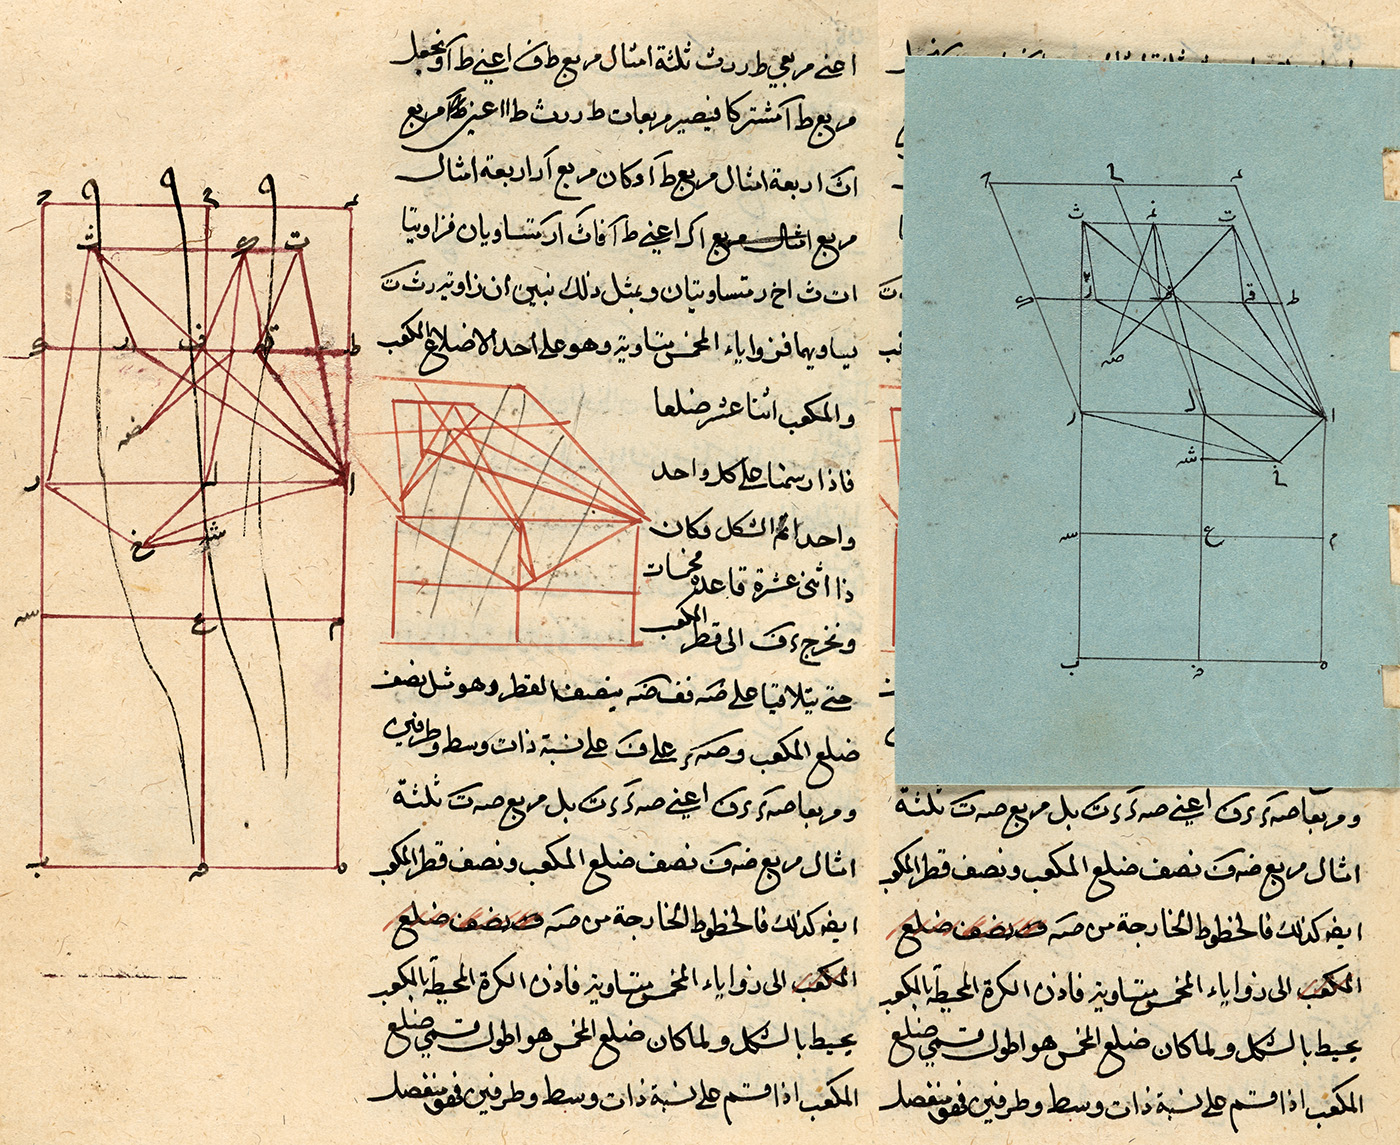 اعني مربعي ط ر رث ثلثة امثال مربع ط ف اعني ط آ ونجعل
مربع ط آ مشتركا فيصير مربعات ط ر رث ط ا اعني مربع
اث اربعة امثال مربع ط آ وكان مربع آر اربعة امثال
مربع اك اعني ط آ فاث ار متساويان فزاويتا
ات ث اخ ر متساويتان وبمثل ذلك نبين ان زاوية رث ت
يساويهما فزواياء المخمس متساوية وهو على احد الاضلاع المكعب
والمكعب اثنا عشر ضلعا
فاذا رسمنا على كل واحد
واحدا تم الشكل وكان
ذا اثنى عشرة قاعدة مخمسات
ونخرج ءف الى قطر المكعب
حتى يتلاقيا على ضه فف ضه ينصف القطر وهو مثل نصف
ضلع المكعب وضه ء على ف على نسبة ذات وسط وطرفين
ومربعا صه ء ءف اعني صه ء ءت بل مربع صه ت ثلثة
امثال مربع ضه ف نصف ضلع المكعب ونصف قطر المكعب
ايضه كذلك فالخطوط الخارجة من ضه ف نصف ضلع
المكعب الى زواياء المخمس متساوية فاذن الكرة المحيطة بالمكعب
يحيط بالشكل ولما كان ضلع المخمس هو اطول قسمي ضلع
المكعب اذا قسم على نسبة ذات وسط وطرفين فهو منفصل
ومربعا صه ء ءف اعني صه ء ءت بل مربع صه ت ثلثة
امثال مربع ضه ف نصف ضلع المكعب ونصف قطر المكعب
ايضه كذلك فالخطوط الخارجة من ضه ف نصف ضلع
المكعب الى زواياء المخمس متساوية فاذن الكرة المحيطة بالمكعب
يحيط بالشكل ولما كان ضلع المخمس هو اطول قسمي ضلع
المكعب اذا قسم على نسبة ذات وسط وطرفين فهو منفصل